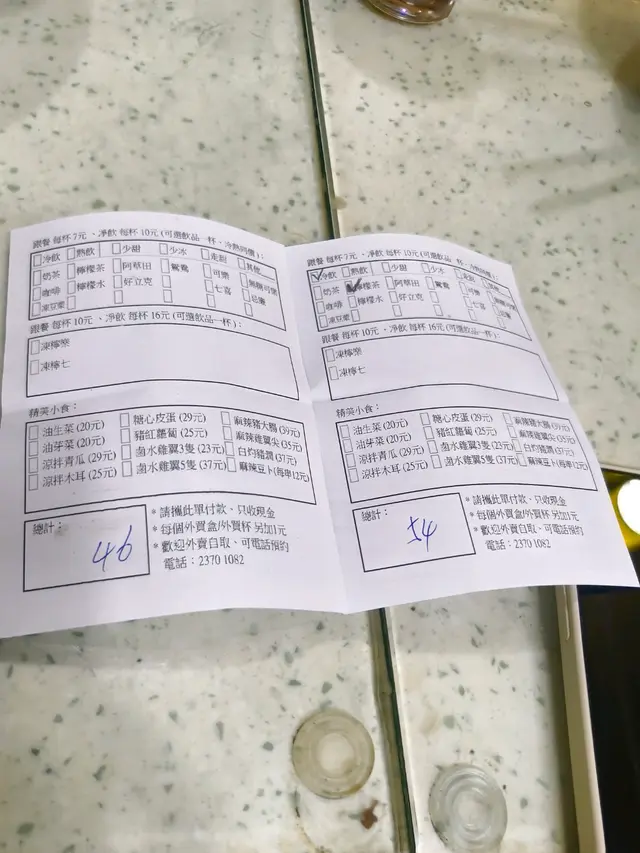 跟餐 每杯 7元、淨飲 每杯 10元 (可選飲品一杯、冷熱同價):
冷飲 熱飲 少甜 少冰 走甜 其他
奶茶 檸檬茶 阿華田 鴛鴦 可樂 無糖可樂
咖啡 檸檬水 好立克 七喜 忌廉
凍豆漿
跟餐 每杯 10元、淨飲 每杯 16元 (可選飲品一杯):
凍檸樂
凍檸七
精美小食:
油生菜 (20元) 糖心皮蛋 (29元) 麻辣豬大腸 (39元)
油芽菜 (20元) 豬紅蘿蔔 (25元) 麻辣雞翼尖 (35元)
涼拌青瓜 (29元) 鹵水雞翼3隻 (23元) 白灼豬膶 (37元)
涼拌木耳 (25元) 鹵水雞翼5隻 (37元) 麻辣豆卜 (每串12元)
總計:
46
* 請攜此單付款、只收現金
* 每個外買盒/外買杯 另加1元
* 歡迎外賣自取、可電話預約
電話:2370 1082
跟餐 每杯 7元、淨飲 每杯 10元 (可選飲品一杯、冷熱同價):
冷飲 熱飲 少甜 少冰 走甜 其他
奶茶 檸檬茶 阿華田 鴛鴦 可樂 無糖可樂
咖啡 檸檬水 好立克 七喜 忌廉
凍豆漿
跟餐 每杯 10元、淨飲 每杯 16元 (可選飲品一杯):
凍檸樂
凍檸七
精美小食:
油生菜 (20元) 糖心皮蛋 (29元) 麻辣豬大腸 (39元)
油芽菜 (20元) 豬紅蘿蔔 (25元) 麻辣雞翼尖 (35元)
涼拌青瓜 (29元) 鹵水雞翼3隻 (23元) 白灼豬膶 (37元)
涼拌木耳 (25元) 鹵水雞翼5隻 (37元) 麻辣豆卜 (每串12元)
總計:
54
* 請攜此單付款、只收現金
* 每個外買盒/外買杯 另加1元
* 歡迎外賣自取、可電話預約
電話:2370 1082